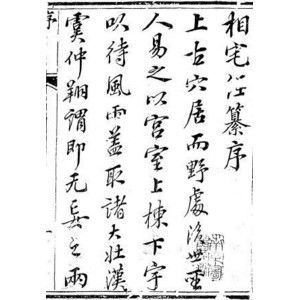 相宅八仕纂序
上古穴居而野處後世聖
人易之以宮室上棟下宇
以待風雨蓋取諸大壯漢
虞仲翔謂即无妄之兩
序